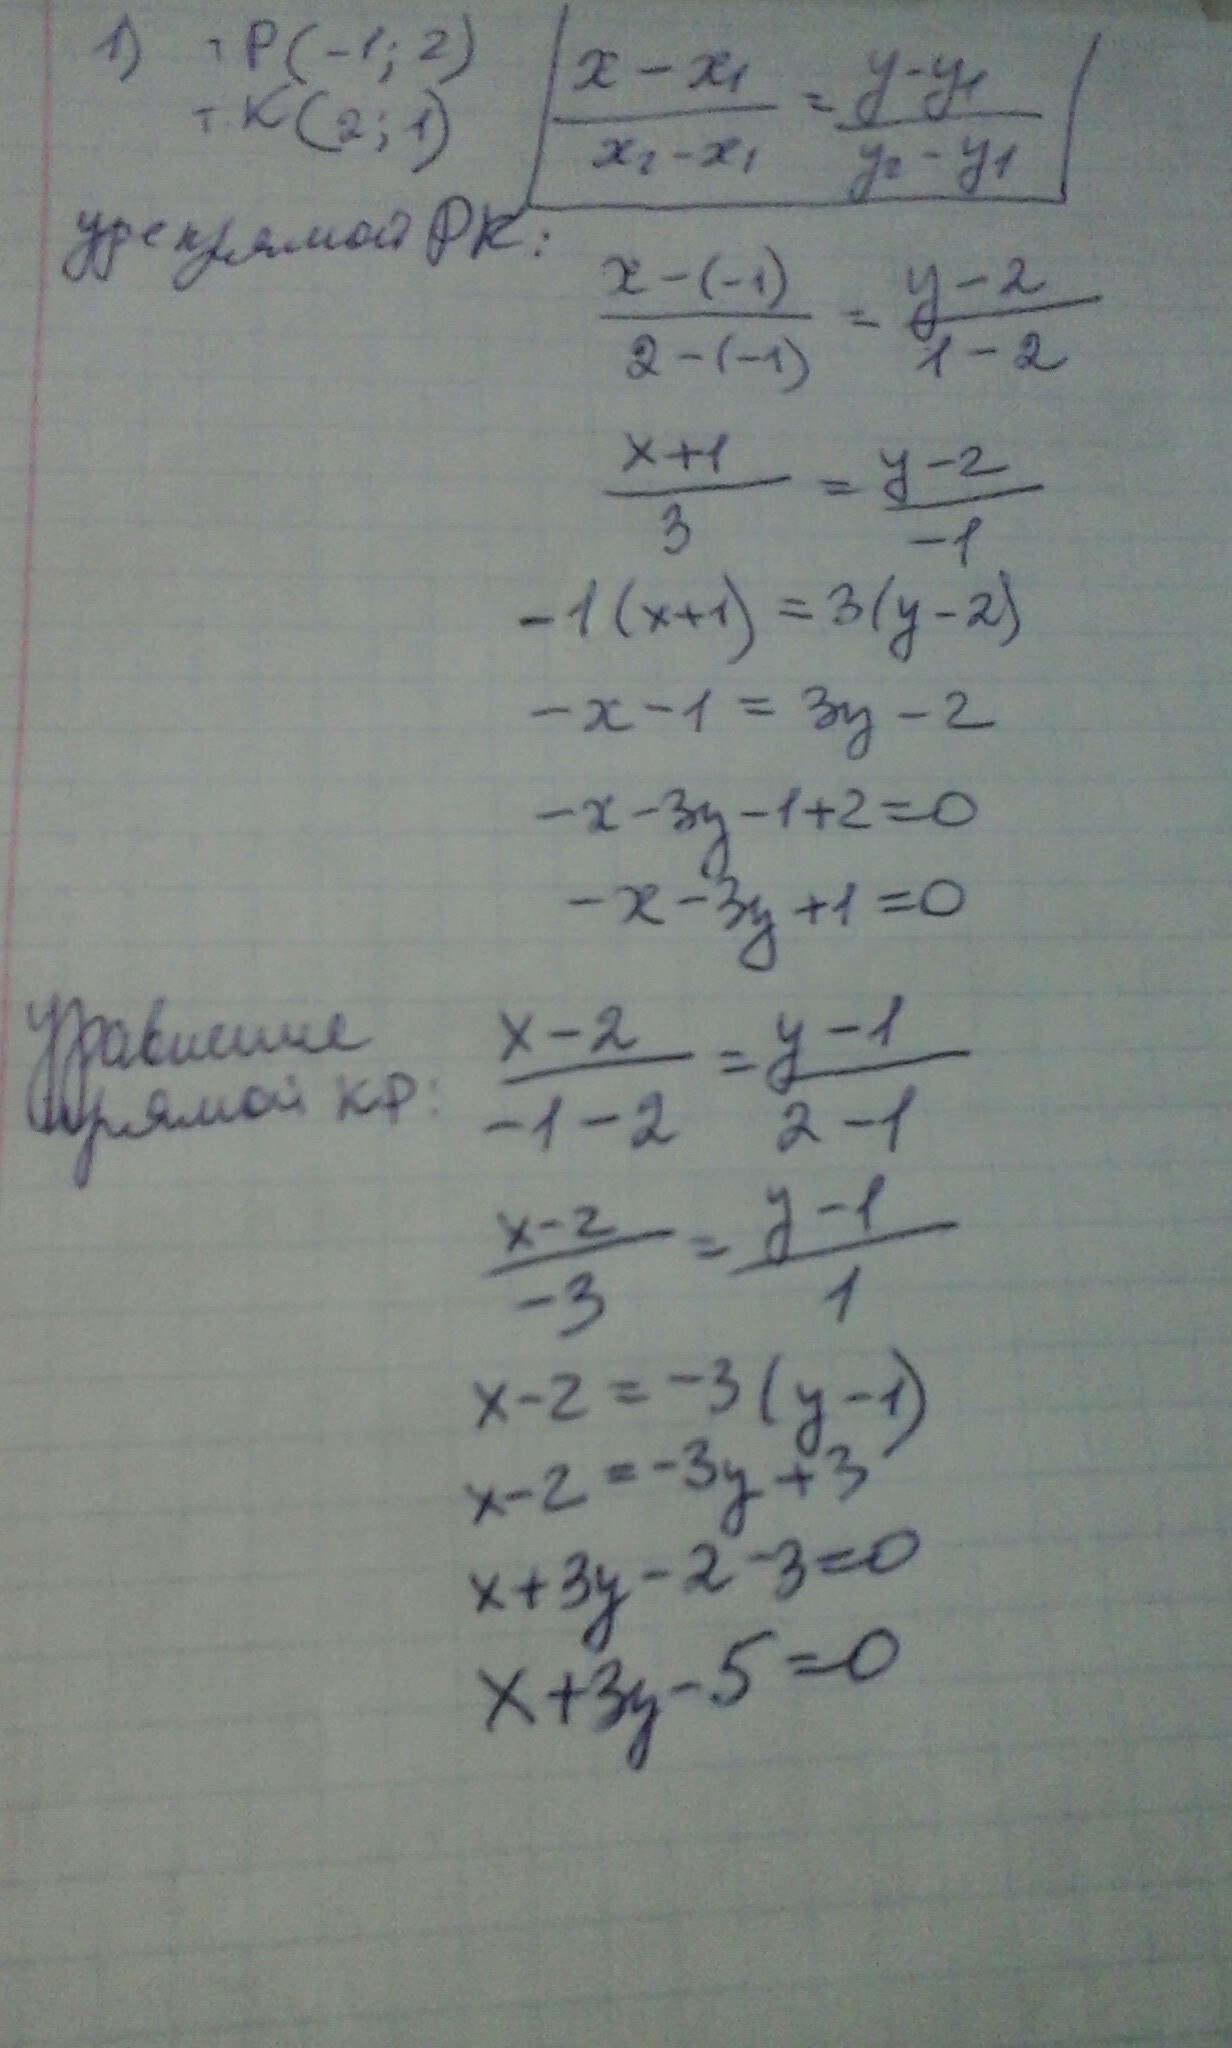 1) т. P(-1; 2)
т. K(2; 1)
(x - x1)/(x2 - x1) = (y - y1)/(y2 - y1)
ур-е прямой PK:
(x - (-1))/(2 - (-1)) = (y - 2)/(1 - 2)
(x+1)/3 = (y-2)/-1
-1(x+1) = 3(y-2)
-x - 1 = 3y - 2
-x - 3y - 1 + 2 = 0
-x - 3y + 1 = 0
Уравнение
прямой KP:
(x - 2)/(-1 - 2) = (y - 1)/(2 - 1)
(x-2)/-3 = (y-1)/1
x - 2 = -3(y - 1)
x - 2 = -3y + 3
x + 3y - 2 - 3 = 0
x + 3y - 5 = 0